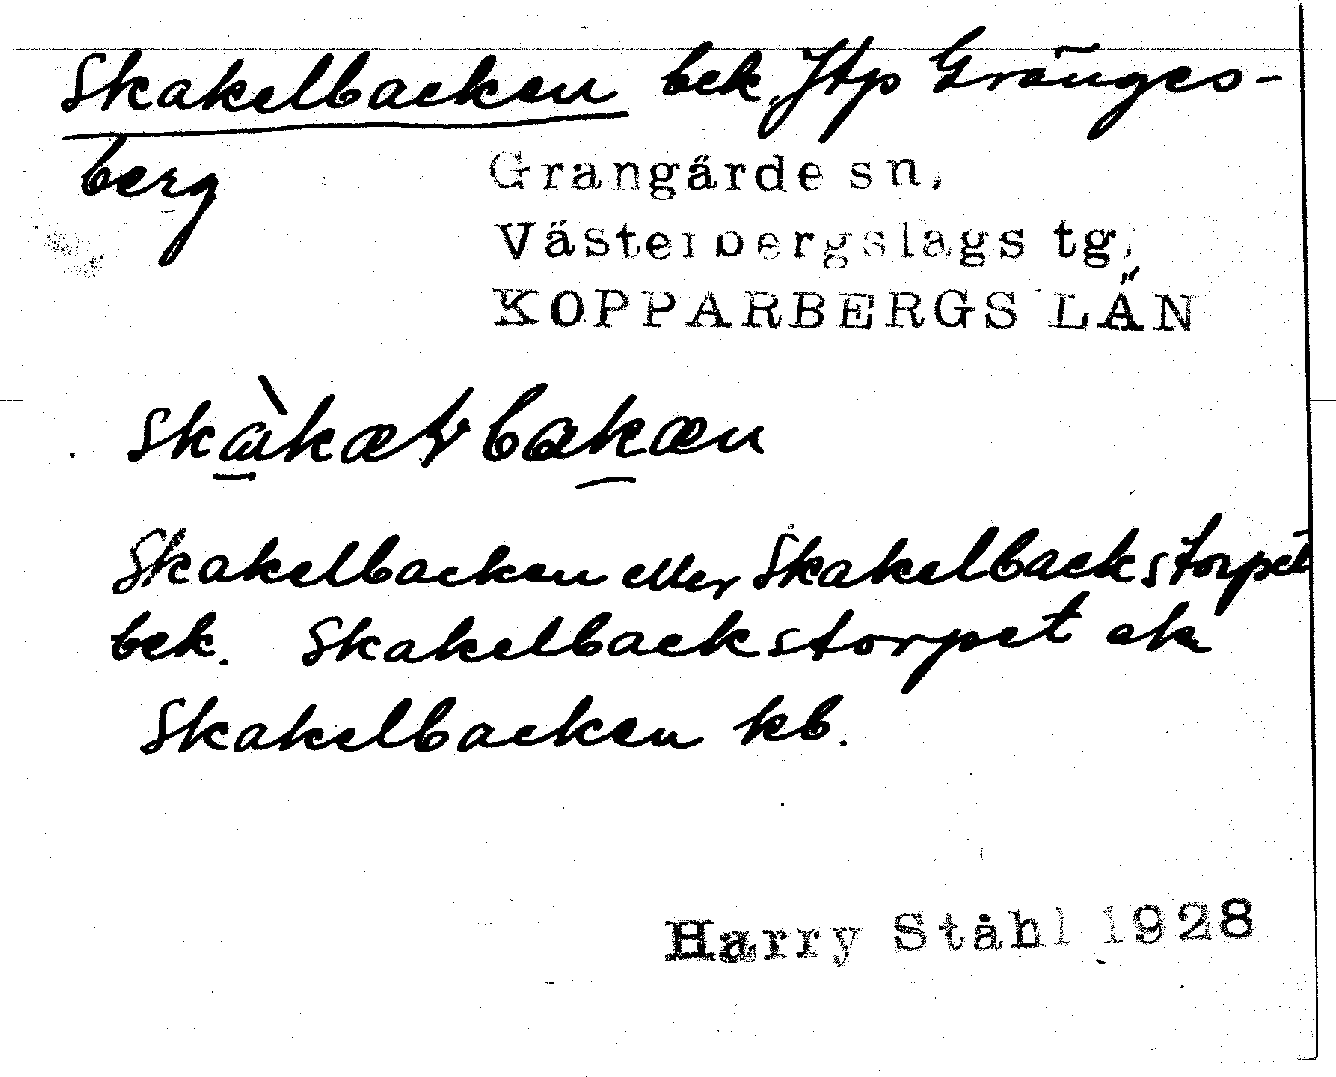 Skakelbacken bek, Jtp Gränges-
berg
Grangärde sn,
Västerbergslags tg,
KOPPARBERGS LÄN
Skakelbacken eller Skakelbackstorpet
bek. Skakelbackstorpet ek
Skakelbacken kb.
Harry Ståhl 1928